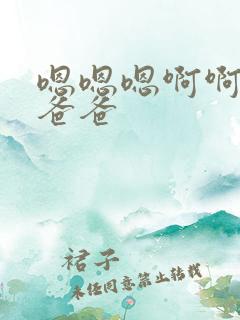 嗯嗯嗯啊啊
爸爸
裙子
未经同意禁止转载